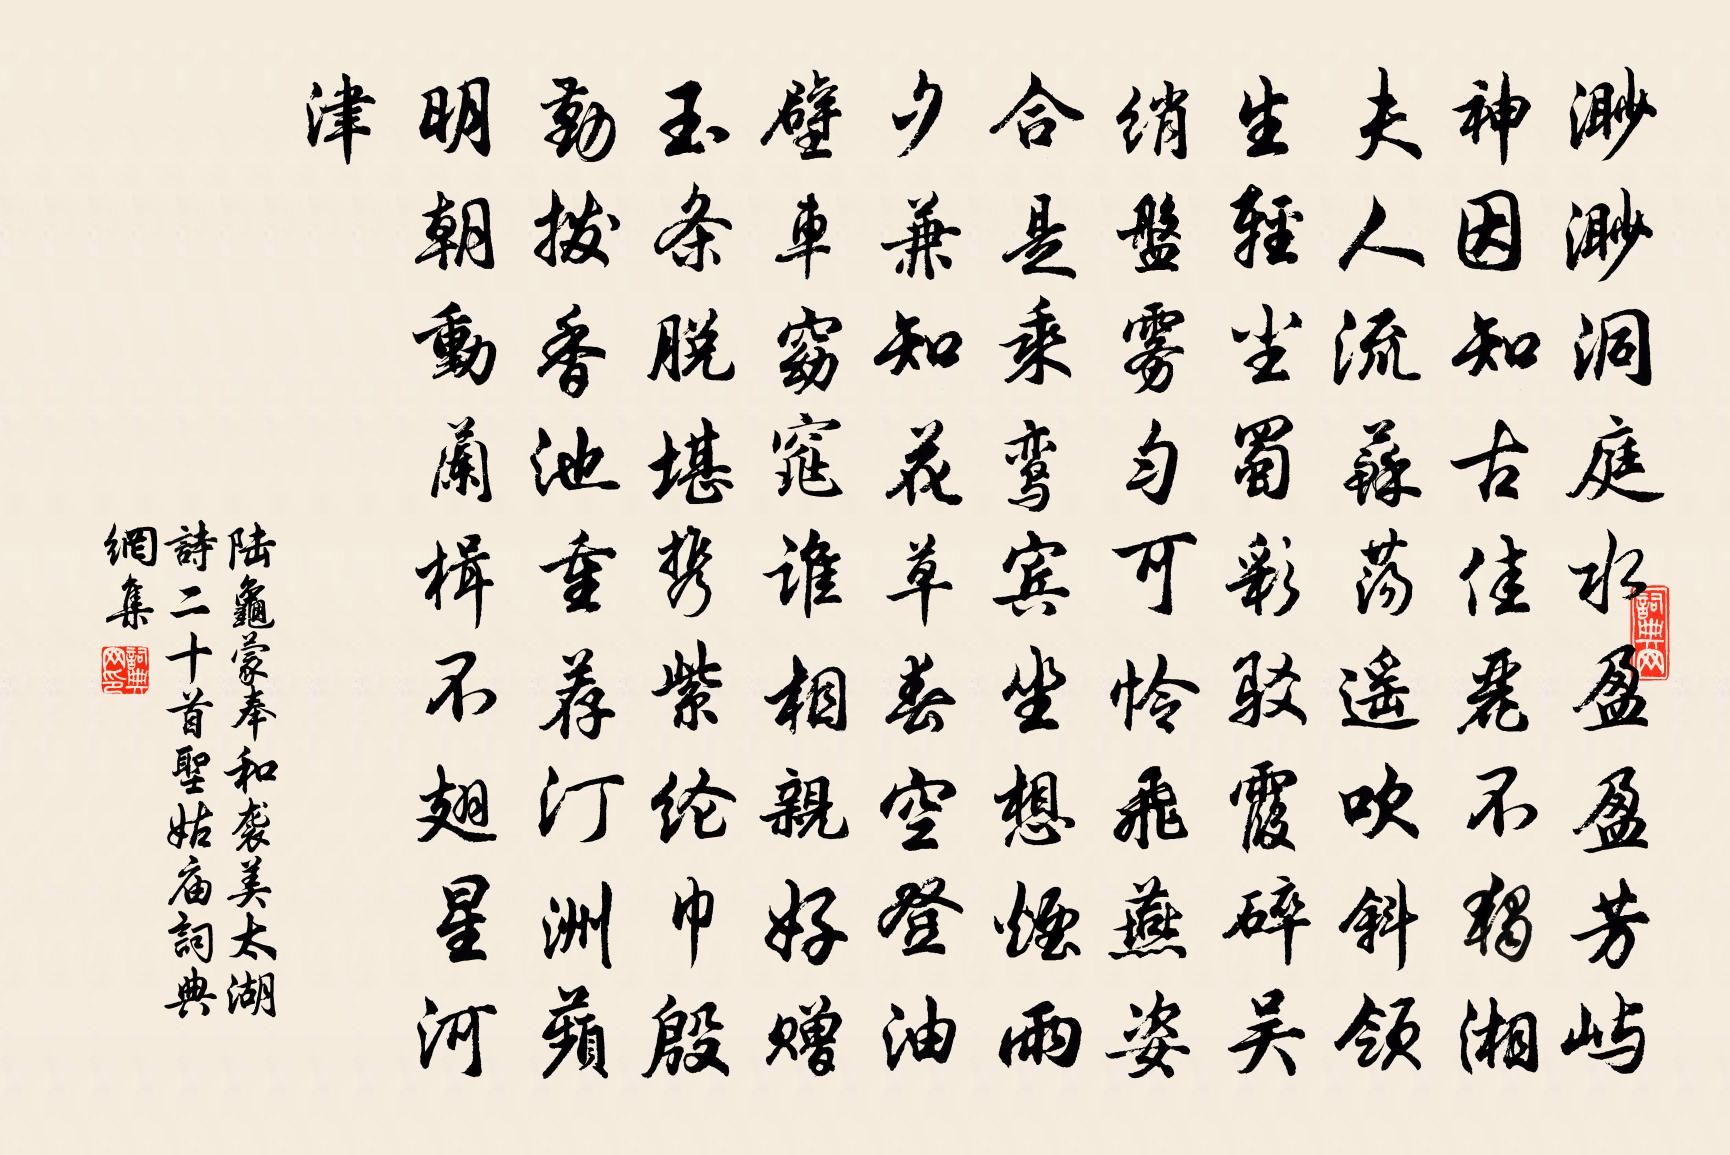 渺渺洞庭水盈盈芳屿
神因知古佳麗不獨湘
夫人流蘇荡遥吹斜領
生輕尘蜀彩駁霞碎吴
绡盤雾匀可怜飛燕姿
合是乘鸾宾坐想煙雨
夕兼知花草春空登油
壁車窈窕誰相親好赠
玉条脱堪携紫纶巾殷
勤拨香池重荐汀洲蘋
明朝動蘭楫不翅星河
津
陆龜蒙奉和袭美太湖
詩二十首聖姑庙詞典
網集
詞典网